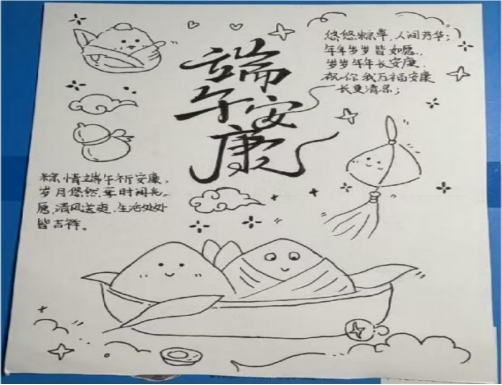 端
午安
康
悠悠粽事,人间芳华;
年年岁岁皆如愿,
岁岁年年长安康,
祝你我万福安康
长夏清乐;
粽情端午祈安康,
岁月悠然,每时阅光
愿,清风送爽,生活处处
皆吉祥。